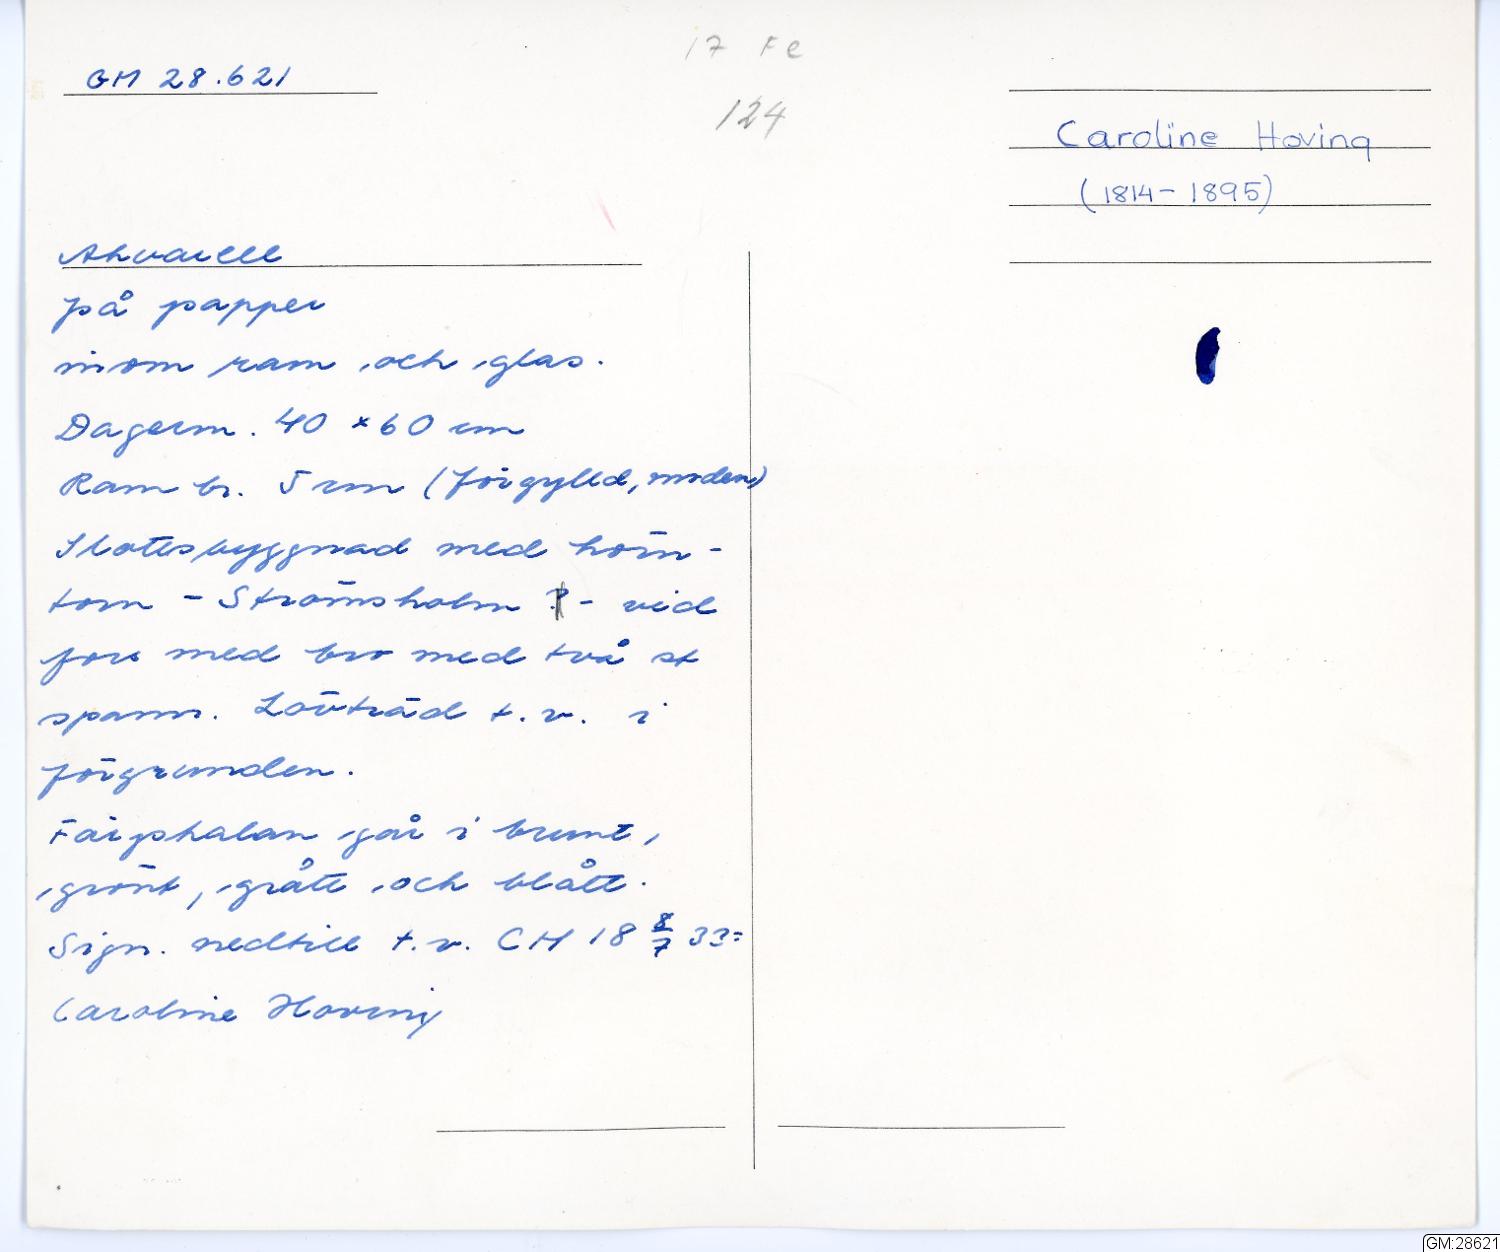 17 Fe
GM 28.621
124
Caroline Hoving
(1814-1895)
Akvarell
på papper
inom ram och glas.
Dagerm. 40 x 60 cm
Ram br. 5 cm (förgylld, modern)
Slottsbyggnad med hörn-
torn - Strömsholm ? - vid
fors med bro med två st
spann. Lövträd t.v. i
förgrunden.
Färgskalan går i brunt,
grönt, grått och blått.
Sign. nedtill t.v. CH 18 8/7 33=
Caroline Hoving
GM:28621